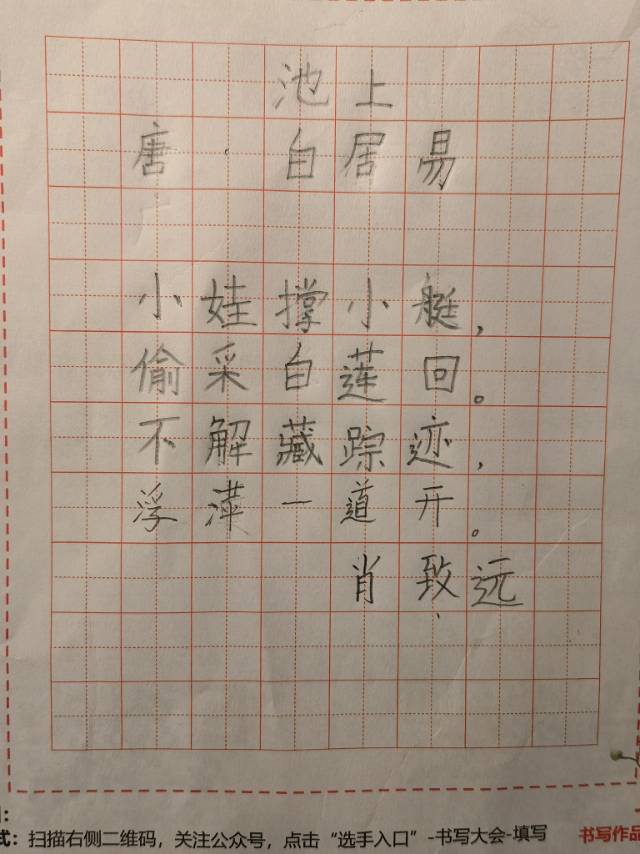 池上
唐·白居易
小娃撑小艇，
偷采白莲回。
不解藏踪迹，
浮萍一道开。
肖致远
式：扫描右侧二维码，关注公众号，点击“选手入口”-书写大会-填写
书写作品